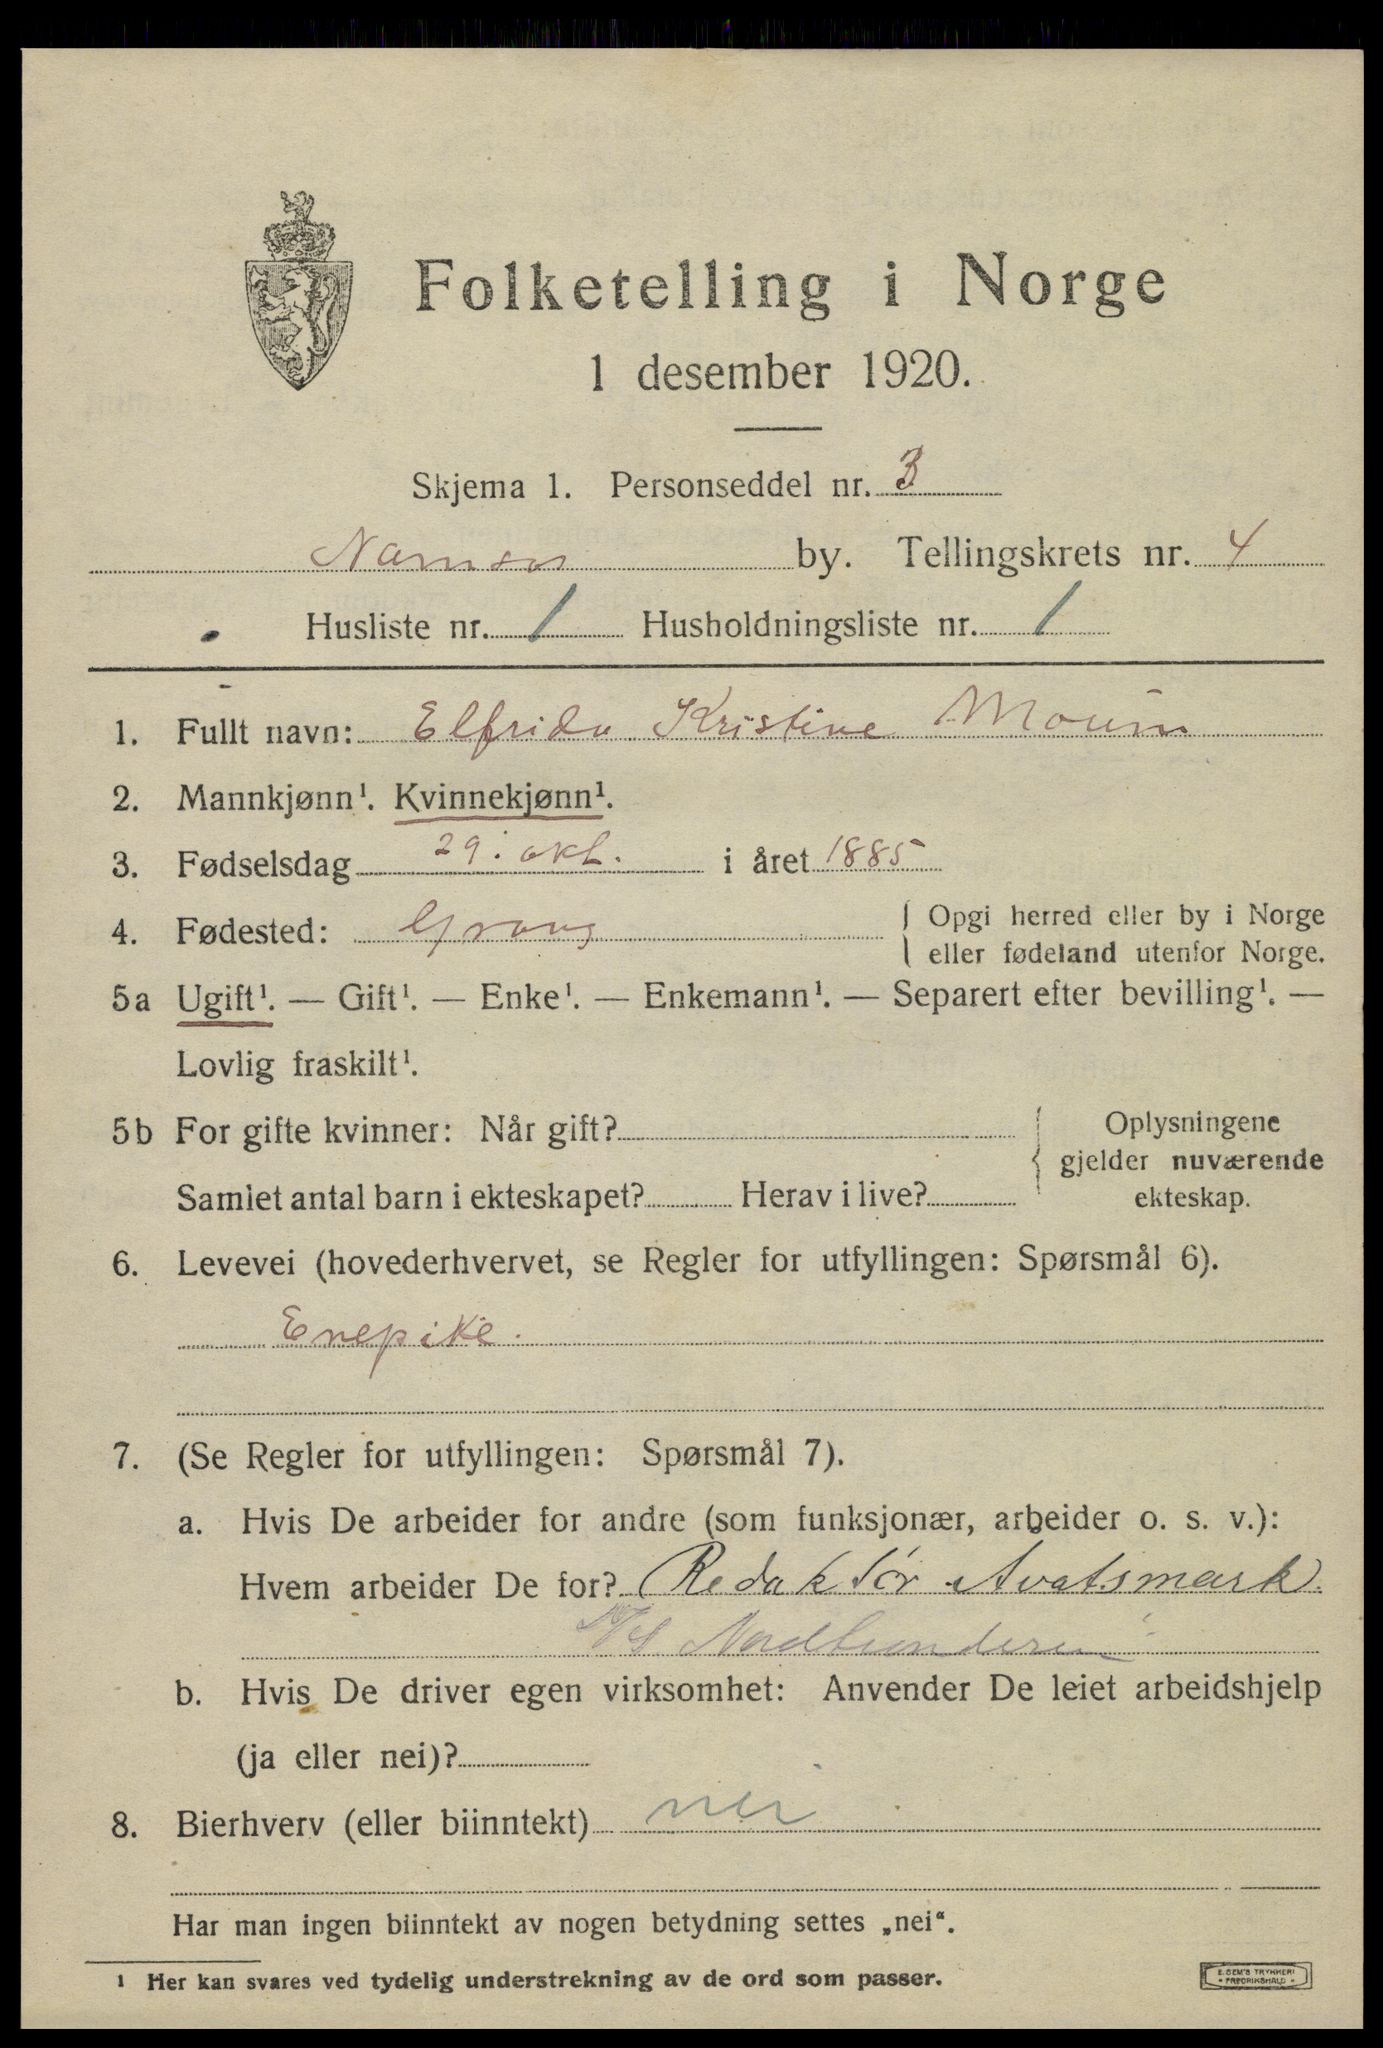 Folketelling i Norge
1 desember 1920.
Skjema 1. Personseddel nr. 3
Namsos by. Tellingskrets nr. 4
Husliste nr. 1 Husholdningsliste nr. 1
1. Fullt navn: Elfrida Kristine Moum
2. Mannkjønn¹. Kvinnekjønn¹.
3. Fødselsdag 29. okt. i året 1885
4. Fødested: Grong { Opgi herred eller by i Norge
eller fødeland utenfor Norge.
5a Ugift¹. — Gift¹. — Enke¹. — Enkemann¹. — Separert efter bevilling¹. —
Lovlig fraskilt¹.
5b For gifte kvinner: Når gift? { Oplysningene
gjelder nuværende
Samlet antal barn i ekteskapet? Herav i live? ekteskap.
6. Levevei (hovederhvervet, se Regler for utfyllingen: Spørsmål 6).
Enepike.
7. (Se Regler for utfyllingen: Spørsmål 7).
a. Hvis De arbeider for andre (som funksjonær, arbeider o. s. v.):
Hvem arbeider De for? Redaktør Avatsmark.
A/S
b. Hvis De driver egen virksomhet: Anvender De leiet arbeidshjelp
(ja eller nei)?
8. Bierhverv (eller biinntekt) nei
Har man ingen biinntekt av nogen betydning settes „nei“.
¹ Her kan svares ved tydelig understrekning av de ord som passer.
E. SEM'S TRYKKERI
• FREDRIKSHALD •